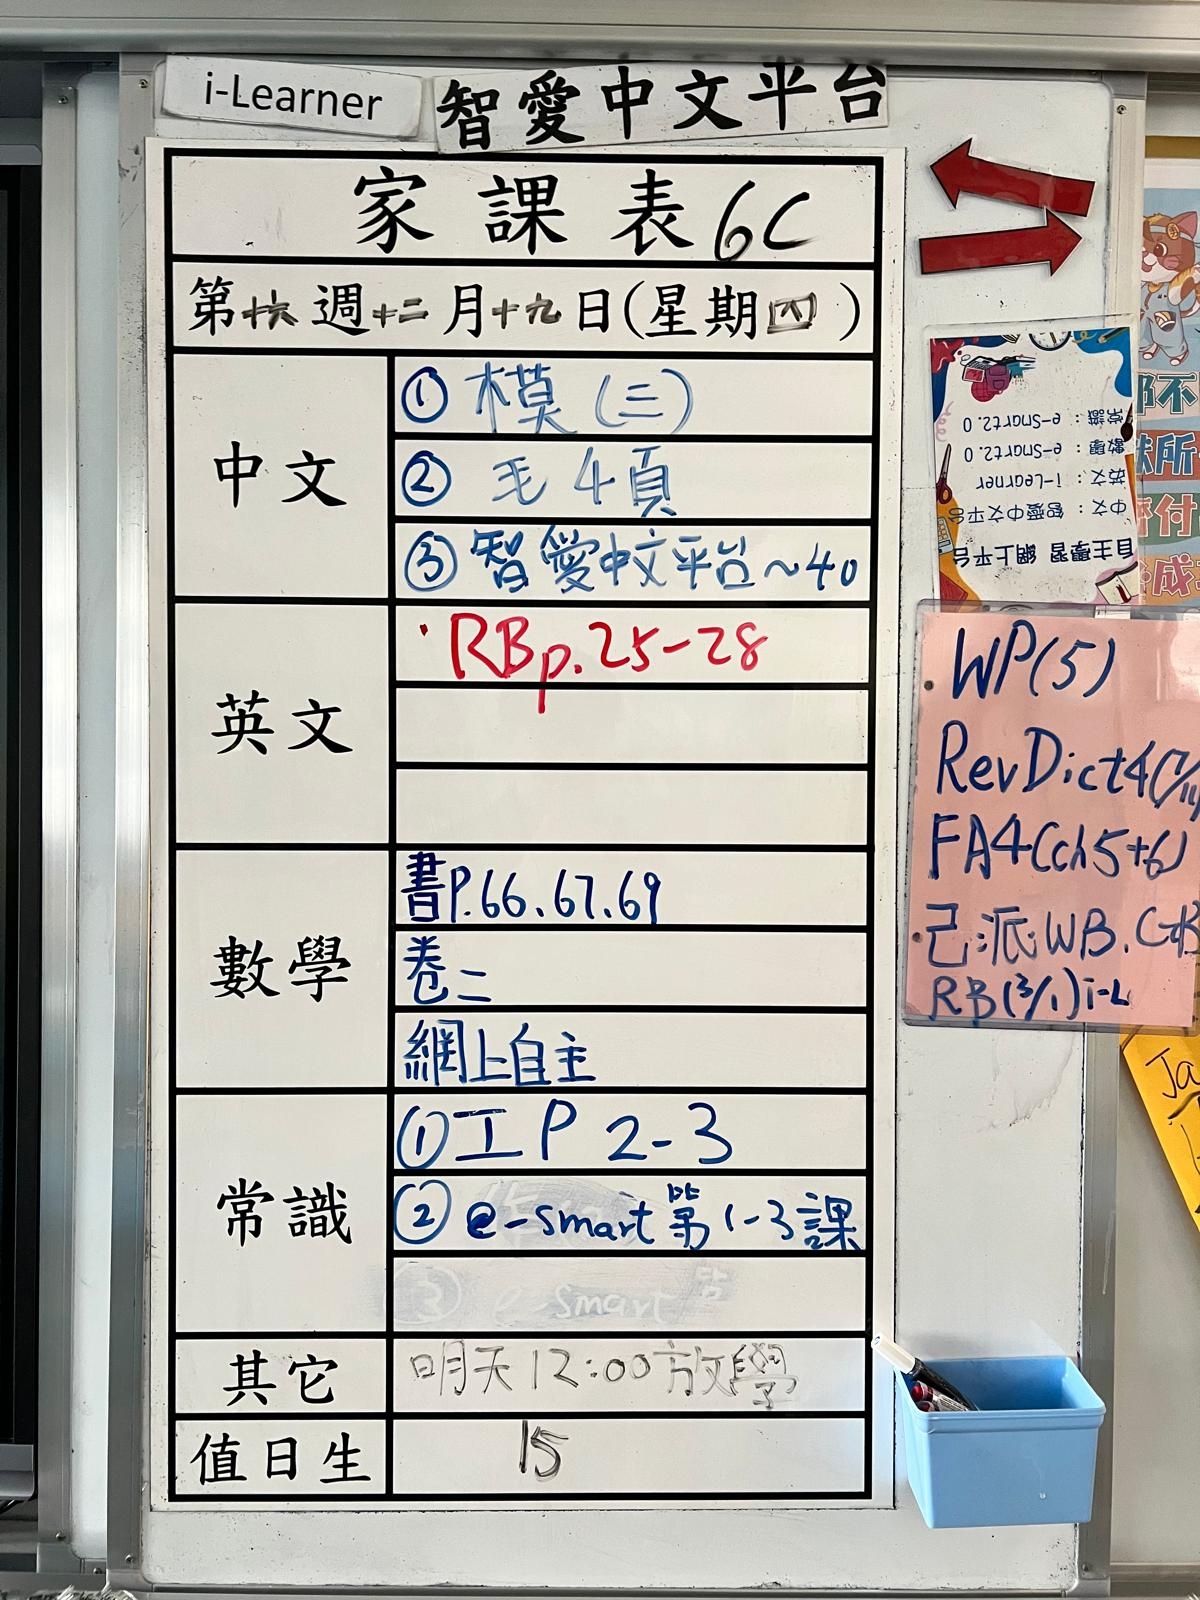 i-Learner 智愛中文平台
家課表 6C
第十六週十二月十九日(星期四)
中文
① 模(三)
② 毛4頁
③ 智愛中文平台~40
英文
· RB p.25-28
數學
書P.66、67、69
卷二
網上自主
常識
① 工P 2-3
② e-smart 第1-3課
③ e-smart
其它
明天12:00放學
值日生
15
自主學習 網上平台
中文:智愛中文平台
英文:i-Learner
數學:e-Smart2.0
常識:e-Smart2.0
WP(5)
RevDict4
FA4(ch5+6)
己派WB.
RB(3/1)i-L
Ja